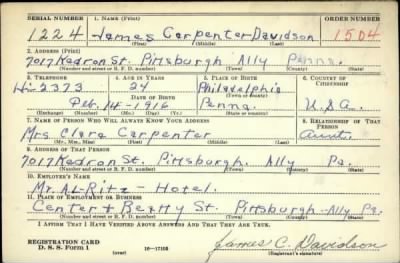 SERIAL NUMBER 1. NAME (Print) ORDER NUMBER
1224 James Carpenter Davidson 1504
(First) (Middle) (Last)
2. ADDRESS (Print)
7017 Kedron St. Pittsburgh Ally Penna.
(Number and street or R. F. D. number) (Town) (County) (State)
3. TELEPHONE 4. AGE IN YEARS 5. PLACE OF BIRTH 6. COUNTRY OF CITIZENSHIP
Hi-2373 24 Philadelphia
DATE OF BIRTH (Town or county)
Feb. 14-1916 Penna. U.S.A.
(Exchange) (Number) (Mo.) (Day) (Yr.) (State or country)
7. NAME OF PERSON WHO WILL ALWAYS KNOW YOUR ADDRESS 8. RELATIONSHIP OF THAT PERSON
Mrs Clara Carpenter Aunt.
(Mr., Mrs., Miss) (First) (Middle) (Last)
9. ADDRESS OF THAT PERSON
7017 Kedron St. Pittsburgh. Ally Pa.
(Number and street or R. F. D. number) (Town) (County) (State)
10. EMPLOYER'S NAME
Mr. Al-Ritz - Hotel.
11. PLACE OF EMPLOYMENT OR BUSINESS
Center + Beatty St. Pittsburgh-Ally Pa.
(Number and street or R. F. D. number) (Town) (County) (State)
I AFFIRM THAT I HAVE VERIFIED ABOVE ANSWERS AND THAT THEY ARE TRUE.
REGISTRATION CARD
D. S. S. Form 1 (over) 16-17105 James C. Davidson
(Registrant's signature)